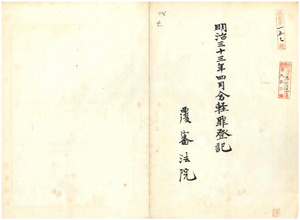 明治三十三年四月分輕罪登記
覆審法院